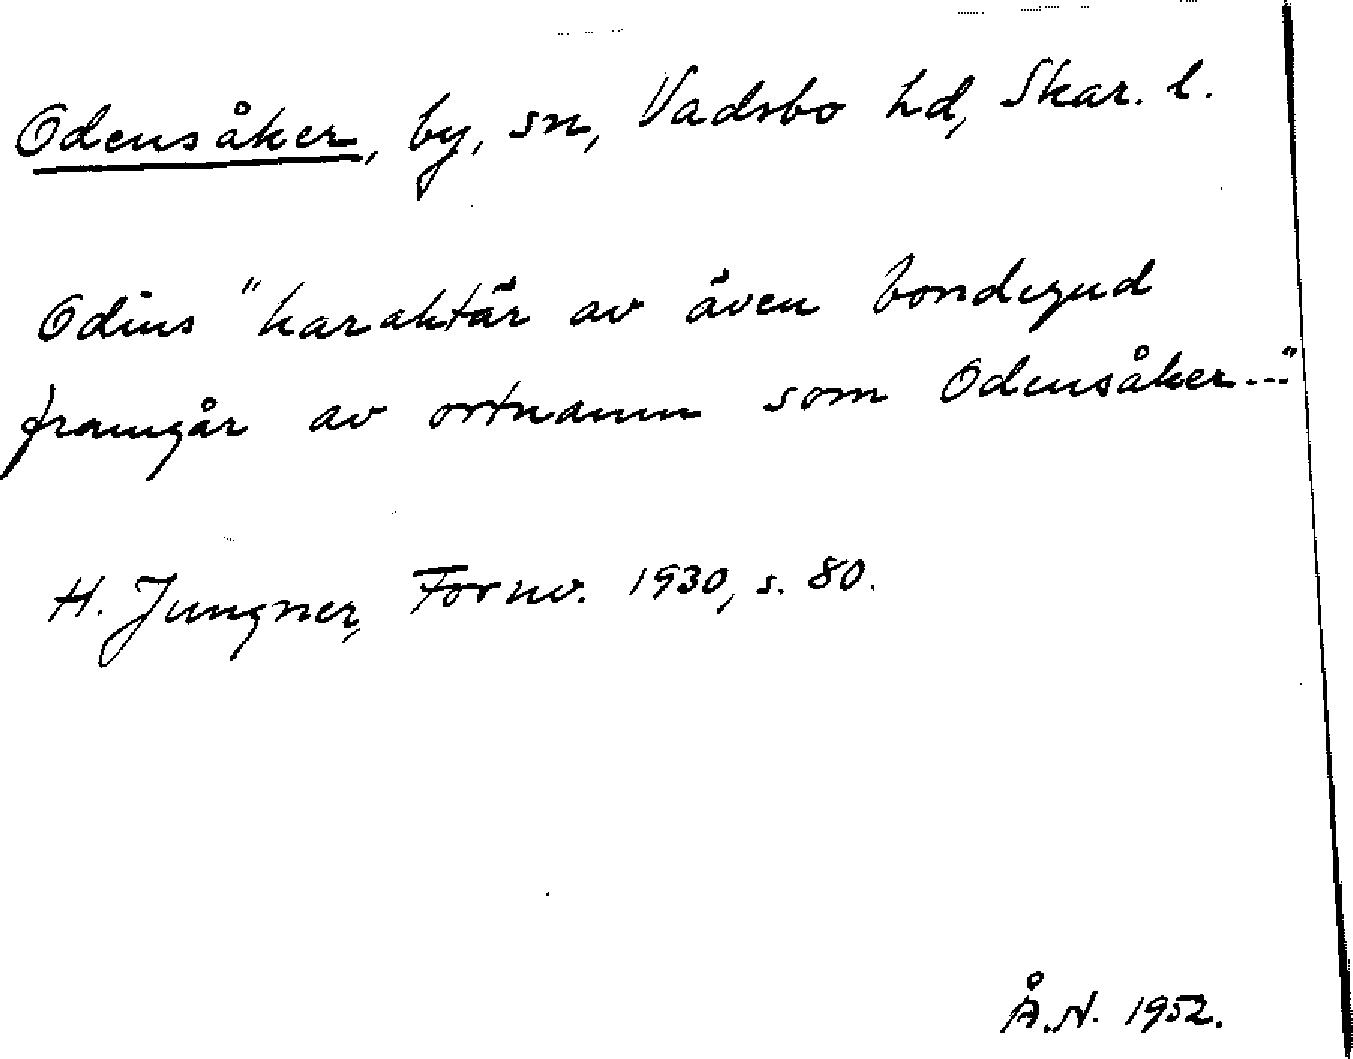 Odensåker, by, sn, Vadsbo hd, Skar. l.
Odins "karaktär av även bondegud
framgår av ortnamn som Odensåker..."
H. Jungner, Fornv. 1930, s. 80.
Å.N. 1952.